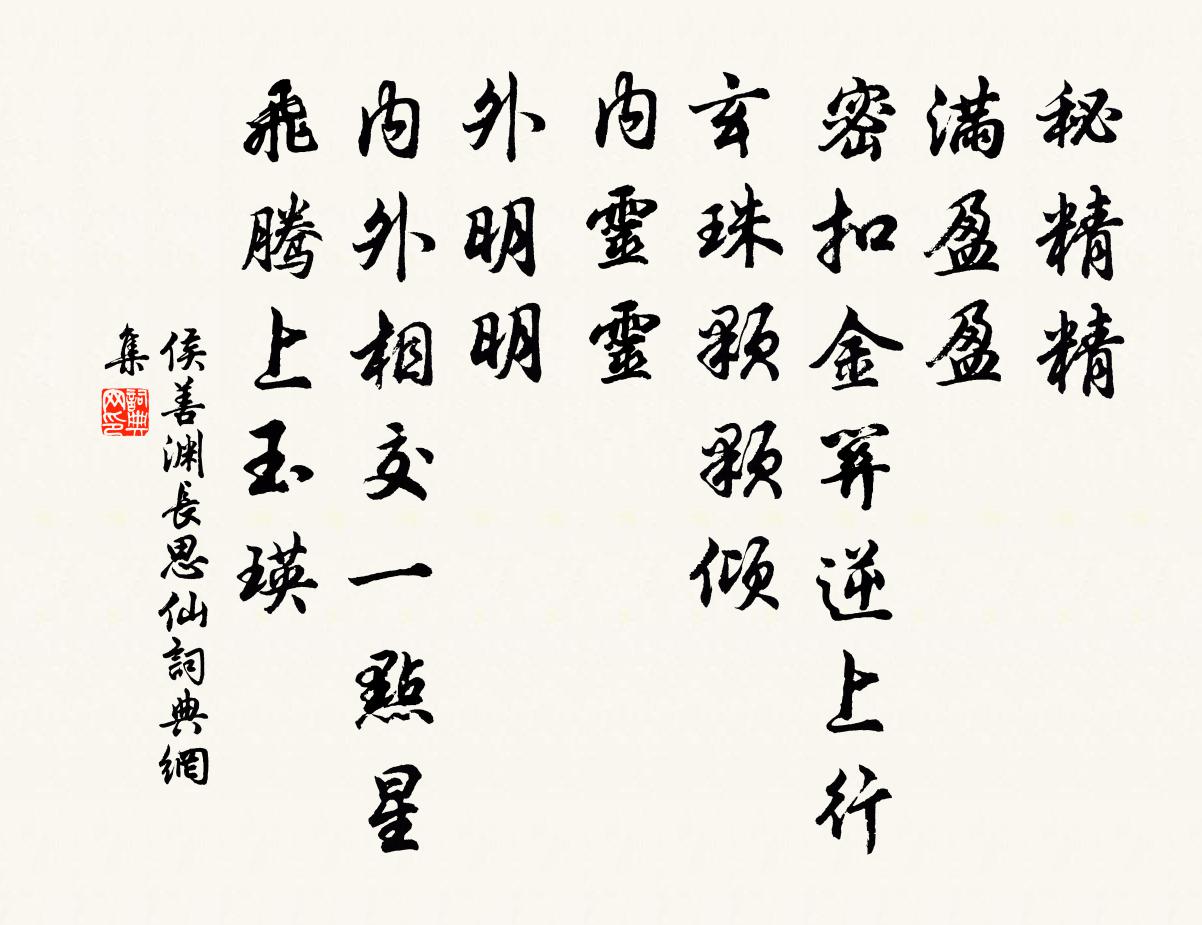 秘精精
滿盈盈
密扣金關逆上行
玄珠顆顆傾
內靈靈
外明明
內外相交一點星
飛騰上玉瑛
侯善渊長思仙詞典網
集
詞典
网印